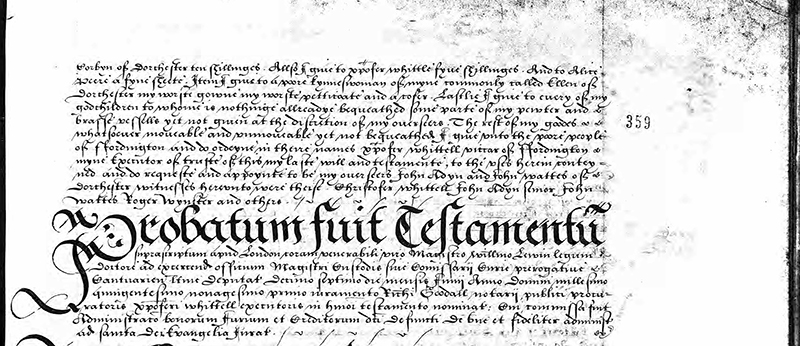 Corbyn of Dorchester ten shillinges. Allso I giue to xpofer whittle fyue shillinges. And to Alice
peere a fyne sheete. Item I giue to a pore kynneswoman of myne commonly called Ellen of
Dorchester my worste gowne my worste petticoate and a cofer. Lastlie I giue to euery of my
godchildren to whome is nothinge allreadye bequeathed some parte of my pewter and
brasse vessells yet not giuen at the discretion of my ouerseers. The rest of my goodes
whatsoeuer moueable and vnmoueable yet not bequeathed I giue vnto the poore people
of ffordington and do ordeyne in theire names xpofer whittell vicar of ffordington
myne Executor of truste of this my laste will and testamente, to the vses herein contey-
ned and do requeste and appoynte to be my ouerseers John Adyn and John wattes of
Dorchester witnesses herevnto were these Christofer whittell John Adyn senior John
wattes Roger wynster and others
Probatum fuit Testamentū
suprascriptum apud London coram venerabili viro Magistro willmo Lewin legum
Doctore ad exercend officium Magistri Custodis siue Comissarij Curie prerogatiue
Cantuarien ltime deputat Decimo septimo die mensis Junij Anno Domini millesimo
quingentesimo nonagesimo primo iuramento Richi Goodall notarij publici procu
ratoris xpoferi whittell executoris in hmoi testamento nominat. Cui comissa fuit
Administraco bonorum iurium et Creditorum dci defuncti De bne et fideliter administ
ad sancta dei Evangelia Iurat.
359